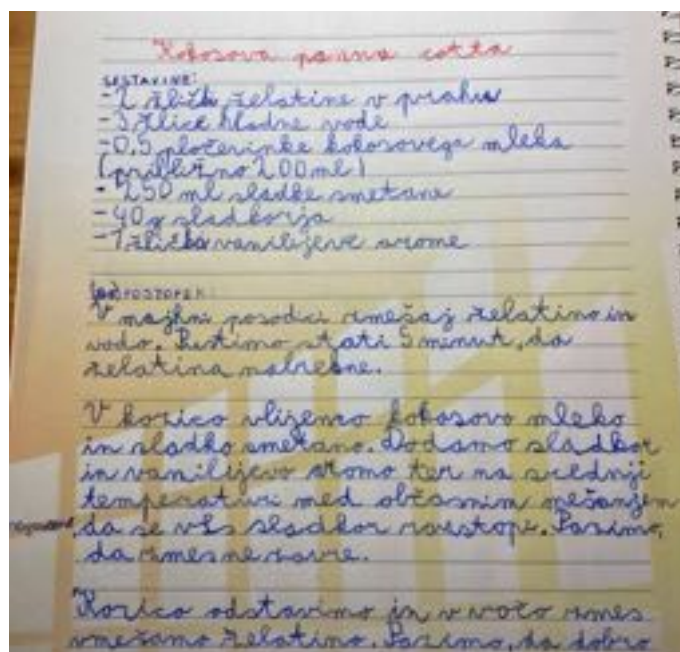 Kokosova panna cotta
SESTAVINE:
- 2 žličk želatine v prahu
- 3 žlice hladne vode
- 0,5 pločevinke kokosovega mleka
(približno 200 ml)
- 250 ml sladke smetane
- 40 g sladkorja
- 1 žlička vanilijeve arome
POSTOPEK:
V majhni posodici zmešaj želatino in
vodo. Pustimo stati 5 minut, da
želatina nabrekne.
V kozico vlijemo kokosovo mleko
in sladko smetano. Dodamo sladkor
in vanilijevo aromo ter na srednji
temperaturi med občasnim mešanjem
da se ves sladkor raztopi. Pazimo,
da zmes ne zavre.
Kozico odstavimo in v vročo zmes
vmešamo želatino. Pazimo, da dobro